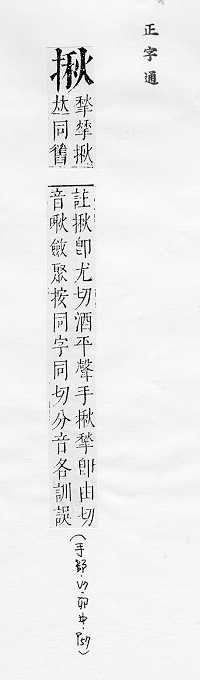 正字通
揪
揫揪
𠀤同舊
註揪卽尤切酒平聲手揪揫卽由切
音啾斂聚按同字同切分音各訓誤
手部